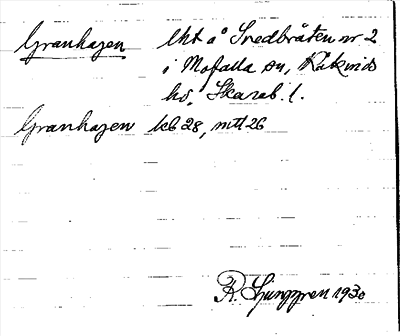 Granhagen lht å Svedbråten nr 2
i Mofalla sn, Kåkinds
hd, Skarab. l.
Granhagen kb 28, mtl 26
R. Ljunggren 1930